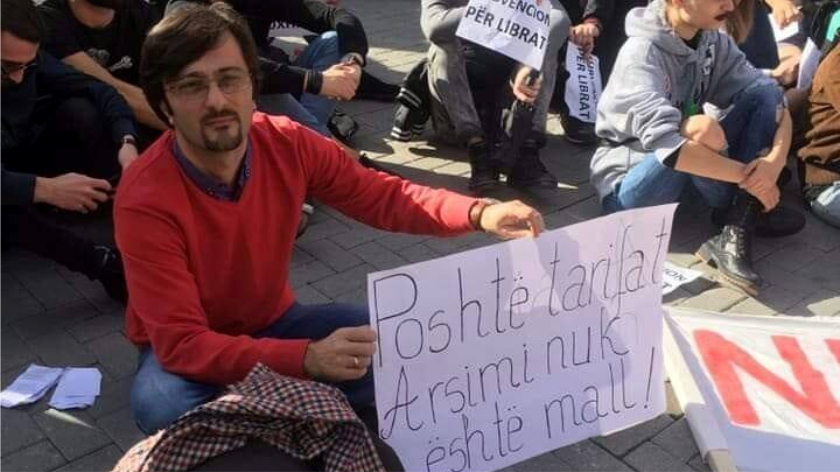 VENCION
PËR LIBRAT
PËR LIBRAT
Poshtë tarifat
Arsimi nuk
është mall!